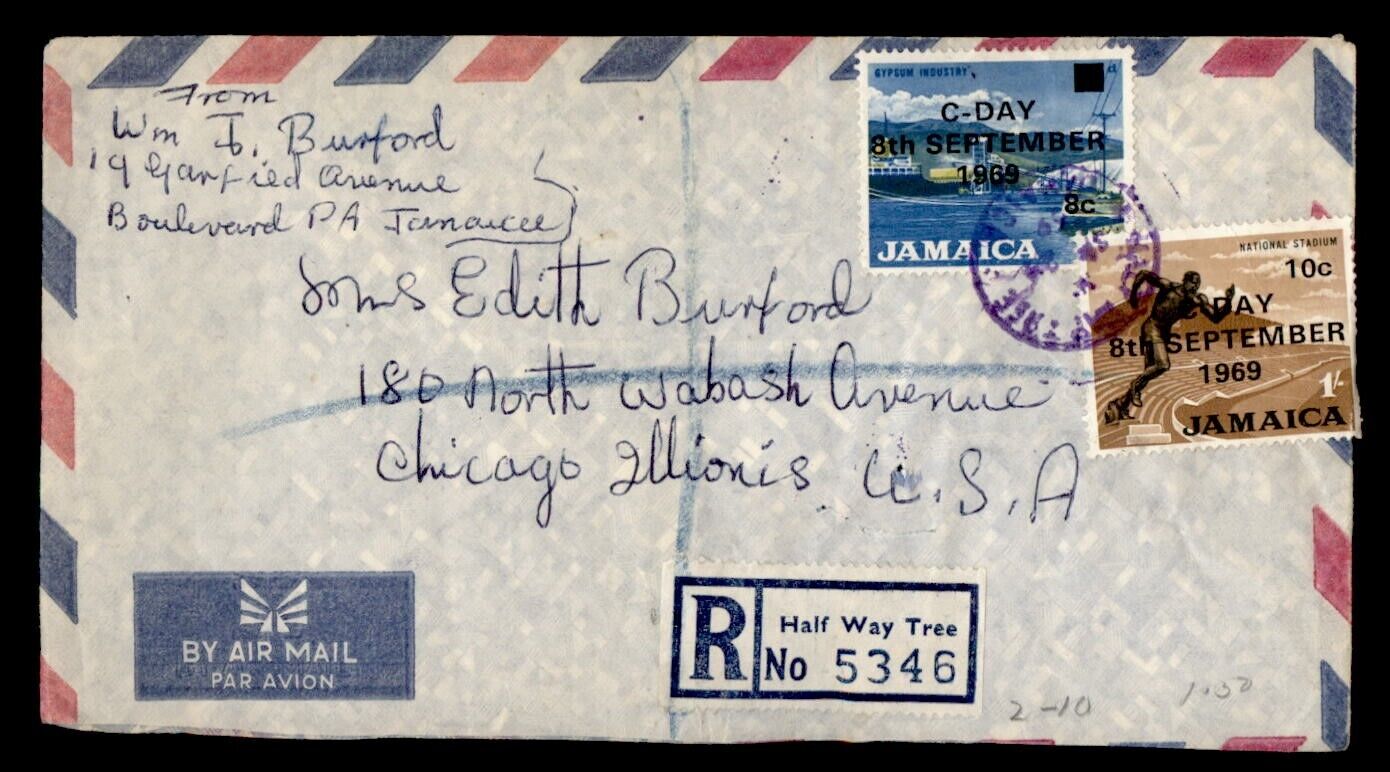 From
Wm I. Burford
19 Garfied Avenue
Boulevard PA Jamaica
GYPSUM INDUSTRY
C-DAY
8th SEPTEMBER
1969
8c
JAMAICA
NATIONAL STADIUM
10c
C-DAY
8th SEPTEMBER
1969
1/-
JAMAICA
Mrs Edith Burford
180 North Wabash Avenue
Chicago Illionis U.S.A
BY AIR MAIL
PAR AVION
R
Half Way Tree
No 5346
2-10
1.50